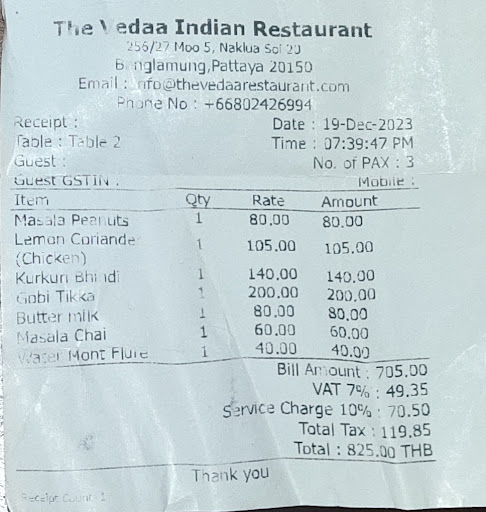 The Vedaa Indian Restaurant
256/27 Moo 5, Naklua Soi 20
Banglamung,Pattaya 20150
Email : info@thevedaarestaurant.com
Phone No : +66802426994
Receipt : Date : 19-Dec-2023
Table : Table 2 Time : 07:39:47 PM
Guest : No. of PAX : 3
Guest GSTIN : Mobile :
Item Qty Rate Amount
Masala Peanuts 1 80.00 80.00
Lemon Coriande 1 105.00 105.00
(Chicken)
Kurkuri Bhindi 1 140.00 140.00
Gobi Tikka 1 200.00 200.00
Butter milk 1 80.00 80.00
Masala Chai 1 60.00 60.00
Water Mont Flure 1 40.00 40.00
Bill Amount : 705.00
VAT 7% : 49.35
Service Charge 10% : 70.50
Total Tax : 119.85
Total : 825.00 THB
Thank you
Receipt Count: 1